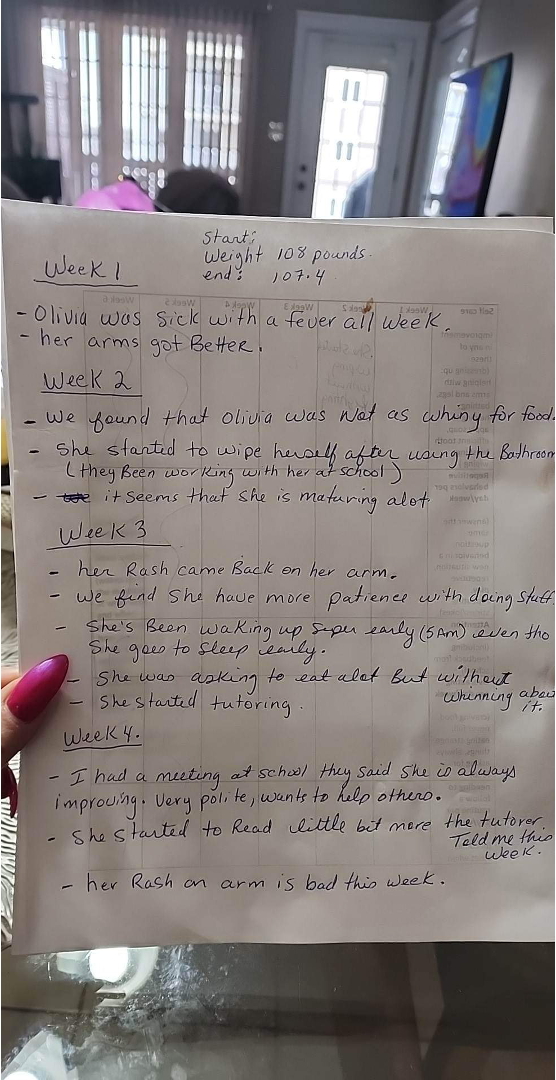 Start:
Weight 108 pounds.
end: 107.4
Week 1
- Olivia was sick with a fever all week.
- her arms got Better.
Week 2
- we found that Olivia was Not as whiny for food.
- She started to wipe herself after using the Bathroom
(they Been working with her at school)
- it seems that she is maturing alot
Week 3
- her Rash came Back on her arm.
- we find She have more patience with doing stuff
- She's Been waking up super early (5AM) even tho
She goes to sleep early.
- She was asking to eat alot But without
whinning about it.
- She started tutoring.
Week 4.
- I had a meeting at school they said She is always
improving. Very polite, wants to help others.
- She started to Read little bit more the tutorer
Told me this
week.
- her Rash on arm is bad this week.
Self care
Week 1
Week 2
Week 3
Week 4
Week 5
Week 6